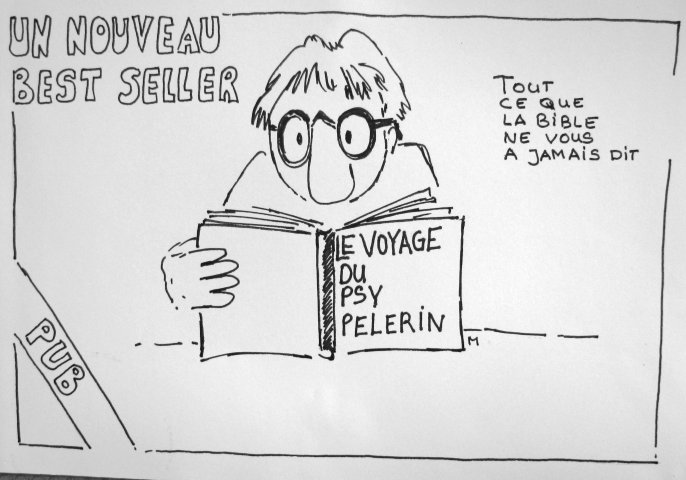 UN NOUVEAU
BEST SELLER
TOUT
CE QUE
LA BIBLE
NE VOUS
A JAMAIS DIT
LE VOYAGE
DU
PSY
PELERIN
M
PUB